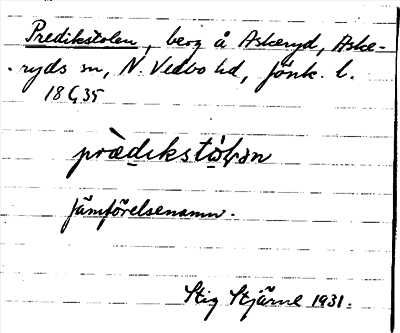 Predikstolen, berg å Askeryd, Aske-
ryds sn, N. Vedbo hd, Jönk. l.
18 G 35
prædikstolən
Jämförelsenamn.
Stig Stjärne 1931.